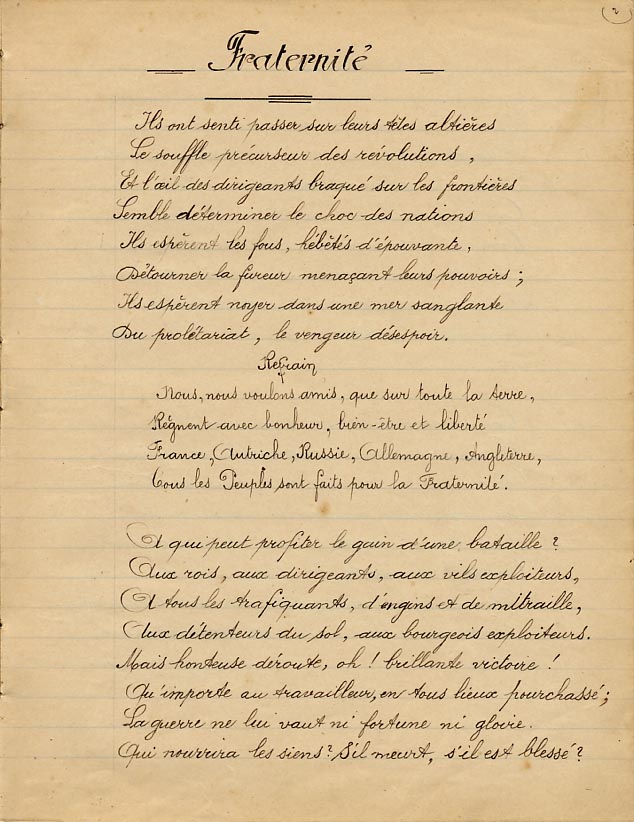 2
Fraternité
Ils ont senti passer sur leurs têtes altières
Le souffle précurseur des révolutions,
Et l'œil des dirigeants braqué sur les frontières
Semble déterminer le choc des nations
Ils espèrent les fous, hébétés d'épouvante,
Détourner la fureur menaçant leurs pouvoirs;
Ils espèrent noyer dans une mer sanglante
Du prolétariat, le vengeur désespoir.
Refrain
Nous, nous voulons amis, que sur toute la terre,
Règnent avec bonheur, bien-être et liberté
France, Autriche, Russie, Allemagne, Angleterre,
Tous les Peuples sont faits pour la Fraternité.
A qui peut profiter le gain d'une bataille?
Aux rois, aux dirigeants, aux vils exploiteurs,
A tous les trafiquants, d'engins et de mitraille,
Aux détenteurs du sol, aux bourgeois exploiteurs.
Mais honteuse déroute, oh! brillante victoire!
Qu'importe au travailleur, en tous lieux pourchassé;
La guerre ne lui vaut ni fortune ni gloire.
Qui nourrira les siens? S'il meurt, s'il est blessé?